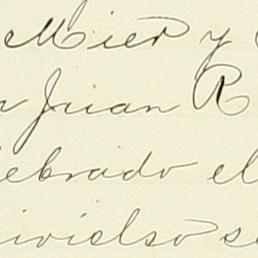 Mier y
Juan R
ebrado el